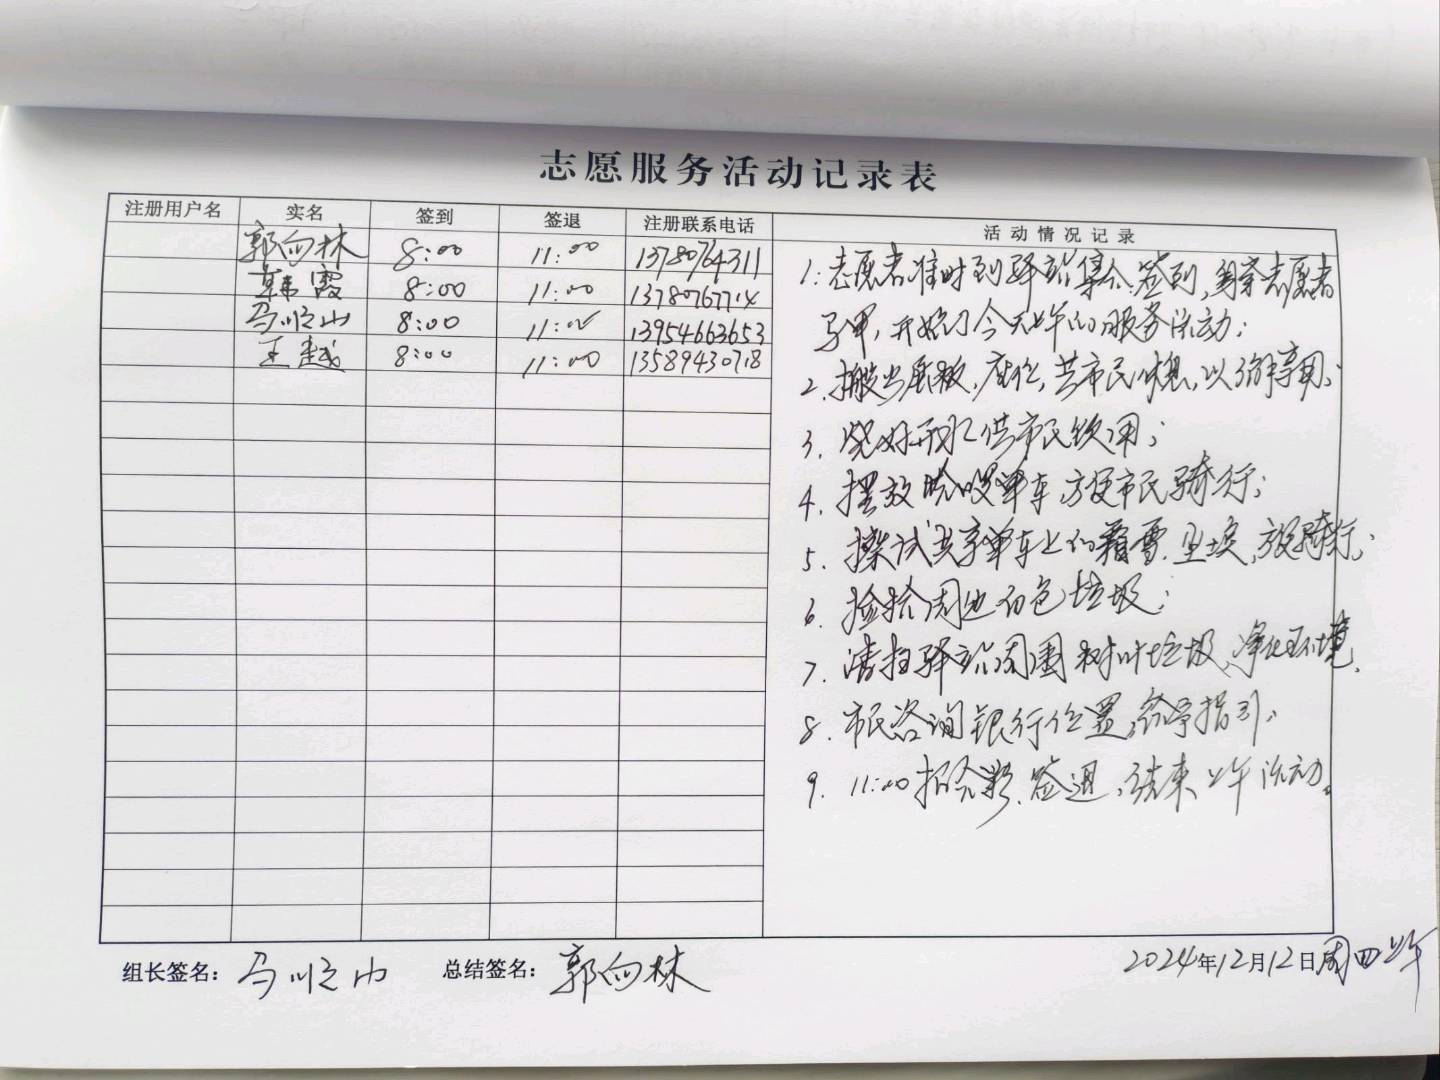 志愿服务活动记录表
注册用户名 实名 签到 签退 注册联系电话 活动情况记录
郭向林 8:00 11:00 13780764311
韩霞 8:00 11:00 13780767714
马顺山 8:00 11:00 13954663653
王越 8:00 11:00 13589430718
1. 志愿者准时到驿站集合签到,穿志愿者
马甲,开始了今天上午的服务活动;
2. 搬出展板,座位,供市民休息,以
3. 烧好开水供市民饮用;
4. 摆放哈啰单车方便市民骑行;
5. 擦试共享单车上的霜雪,方便骑行;
6. 捡拾周边白色垃圾;
7. 清扫驿站周围树叶垃圾,净化环境,
8. 市民咨询银行位置,给予指引;
9. 11:00拍合影,签退,结束上午活动。
组长签名: 马顺山 总结签名: 郭向林 2024年12月12日周四上午